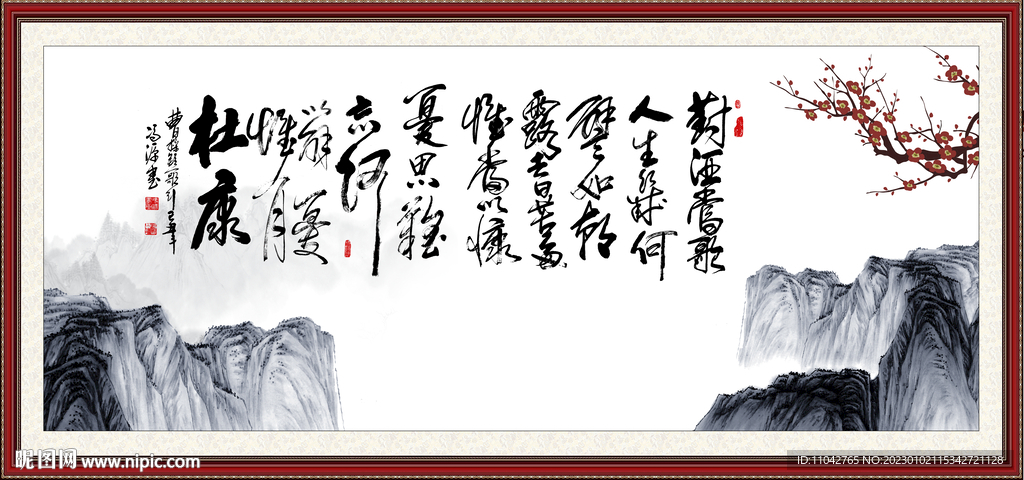 對酒當歌
人生幾何
譬如朝
露去日苦多
慨當以慷
憂思難
忘何
以解憂
惟有
杜康
曹操短歌行
昵图网 www.nipic.com
ID:11042765 NO:20230102115342721128